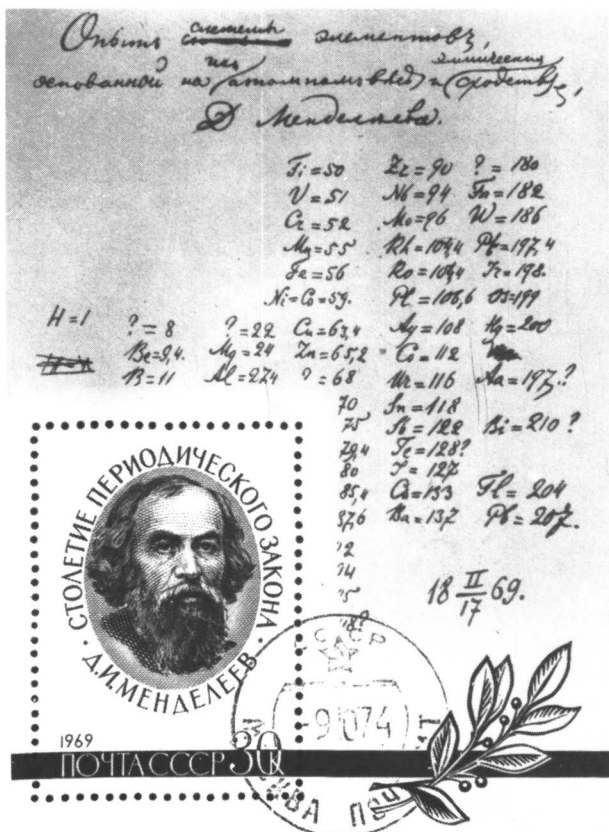 Опытъ системы элементовъ,
основанной на ихъ атомномъ вѣсѣ и химическомъ сродствѣ,
Д Менделѣева.
Ti=50 Zr=90 ?=180
V=51 Nb=94 Ta=182
Cr=52 Mo=96 W=186
Mn=55 Rh=104,4 Pt=197,4
Fe=56 Ru=104,4 Ir=198.
Ni=Co=59. Pl=106,6 Os=199
H=1 ?=8 ?=22 Cu=63,4 Ag=108 Hg=200
Be=9,4. Mg=24 Zn=65,2 Cd=112
B=11 Al=27,4 ?=68 Ur=116 Au=197?
70 Sn=118
75 Sb=122 Bi=210?
79,4 Te=128?
80 J=127
85,4 Cs=133 Tl=204
87,6 Ba=137 Pb=207.
18 II/17 69.
СТОЛЕТИЕ ПЕРИОДИЧЕСКОГО ЗАКОНА
Д.И.МЕНДЕЛЕЕВ
1969
ПОЧТА СССР 30К
СССР
-91074
МОСКВА